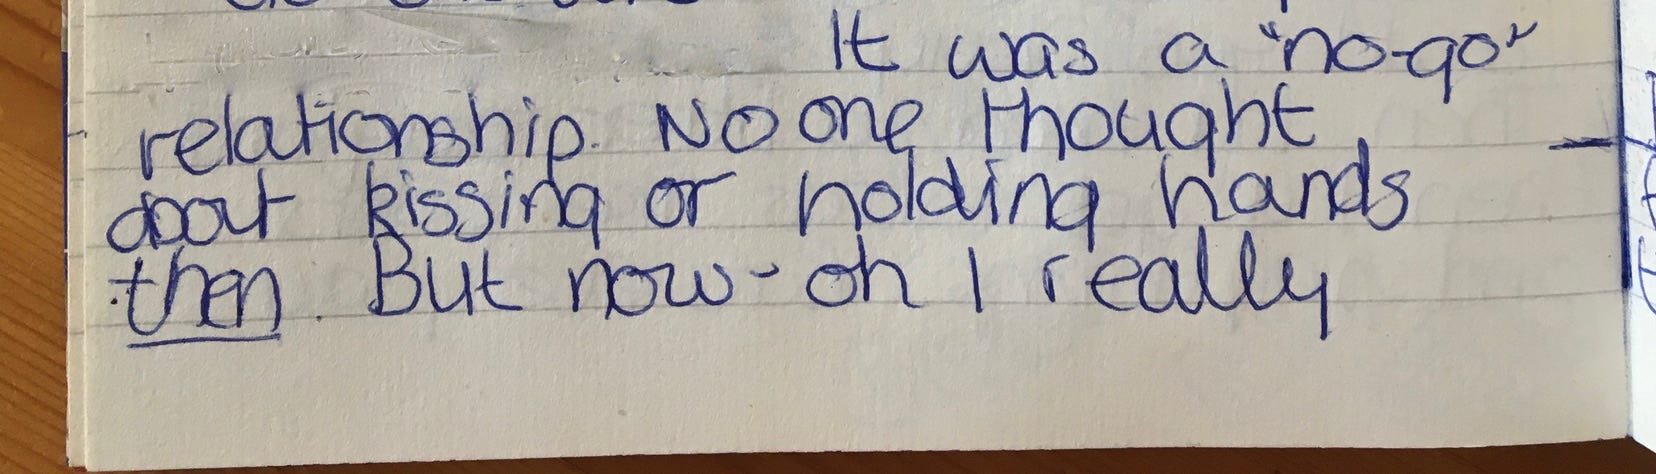 It was a "no-go"
relationship. No one thought
about kissing or holding hands
then. But now - oh I really